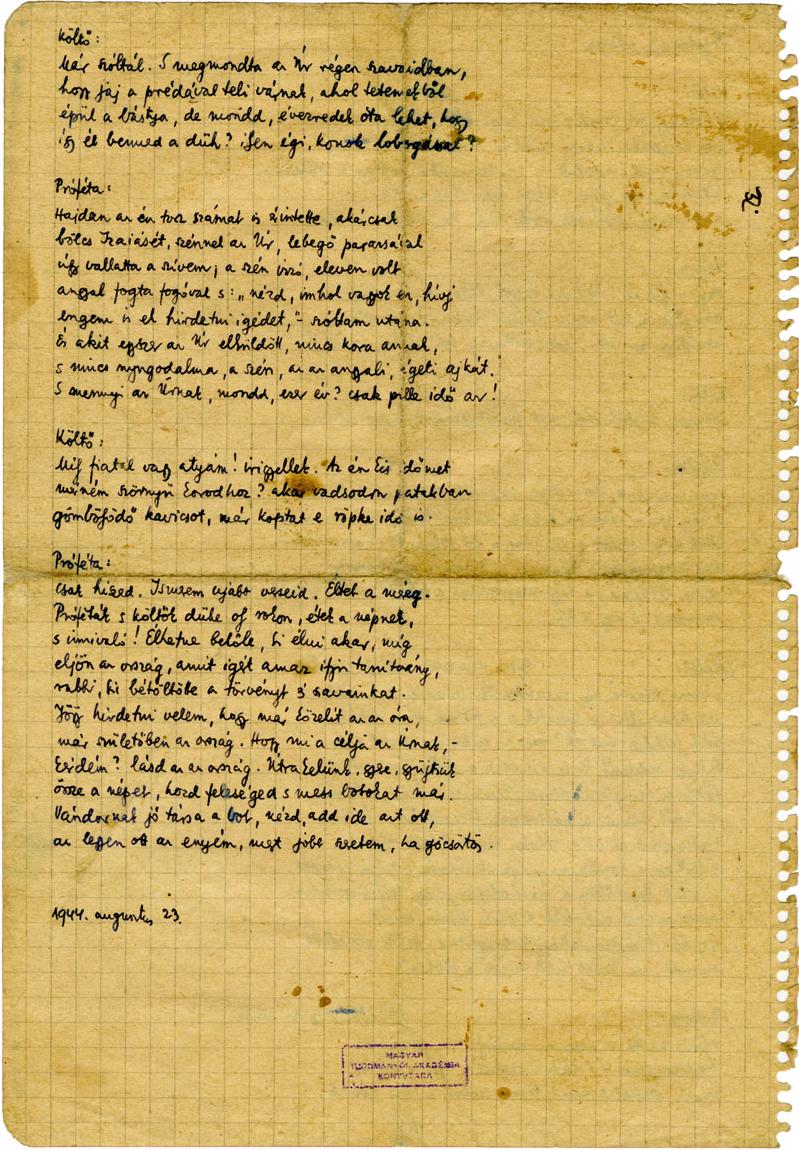 Költő:
Már szóltál. S megmondta az Úr régen szavaidban,
hogy jaj a prédával teli várnak, ahol tetemekből
épül a bástya, de mondd, évezredek óta lehet, hogy
így él benned a düh? ilyen égi, konok lobogással?
32.
Próféta:
Hajdan az én torz számat is érintette, akárcsak
bölcs Izaiásét, szénnel az Úr, lebegő parazsával
úgy vallatta a szívem; a szén izzó, eleven volt
angyal fogta fogóval s: „nézd, imhol vagyok én, hívj
engem is el hirdetni igédet,"- szóltam utána.
És akit egyszer az Úr elküldött, nincs kora annak,
s nincs nyugodalma, a szén, az az angyali, égeti ajkát.
S mennyi az Úrnak, mondd, ezer év? csak pille idő az!
Költő:
Mily fiatal vagy atyám! irigyellek. Az én kis időmet
mérném szörnyű korodhoz? akár vadsodrú patakban
gömbölyödő kavicsot, már koptat e röpke idő is.
Próféta:
Csak hiszed. Ismerem ujabb verseid. Éltet a méreg.
Próféták s költők dühe oly rokon, étek a népnek,
s innivaló! Élhetne belőle, ki élni akar, míg
eljön az ország, amit igért amaz ifju tanítvány,
rabbi, ki bétöltötte a törvényt s szavainkat.
Jöjj hirdetni velem, hogy már közelít az az óra,
már születőben az ország. Hogy mi a célja az Úrnak,-
kérdém? lásd az az ország. Útrakelünk, gyere, gyüjtsük
össze a népet, hozd feleséged s mess botokat már.
Vándornak jó társa a bot, nézd, add ide azt ott,
az legyen ott az enyém, mert jobb szeretem, ha göcsörtös.
1944. augusztus 23.
MAGYAR
TUDOMÁNYOS AKADÉMIA
KÖNYVTÁRA